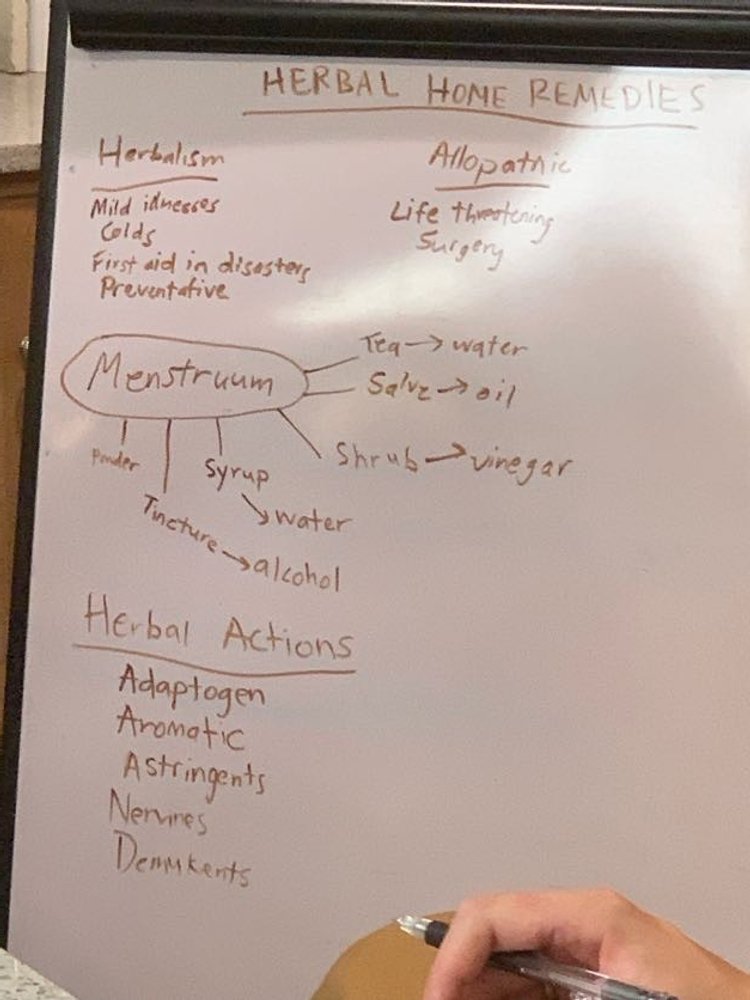 HERBAL HOME REMEDIES
Herbalism
Mild idnesses
Colds
First aid in disasters
Preventative
Allopathic
Life threatening
Surgery
Menstruum
Tea → water
Salve → oil
Shrub → vinegar
Powder
Syrup
→ water
Tincture → alcohol
Herbal Actions
Adaptogen
Aromatic
Astringents
Nervines
Demulcents